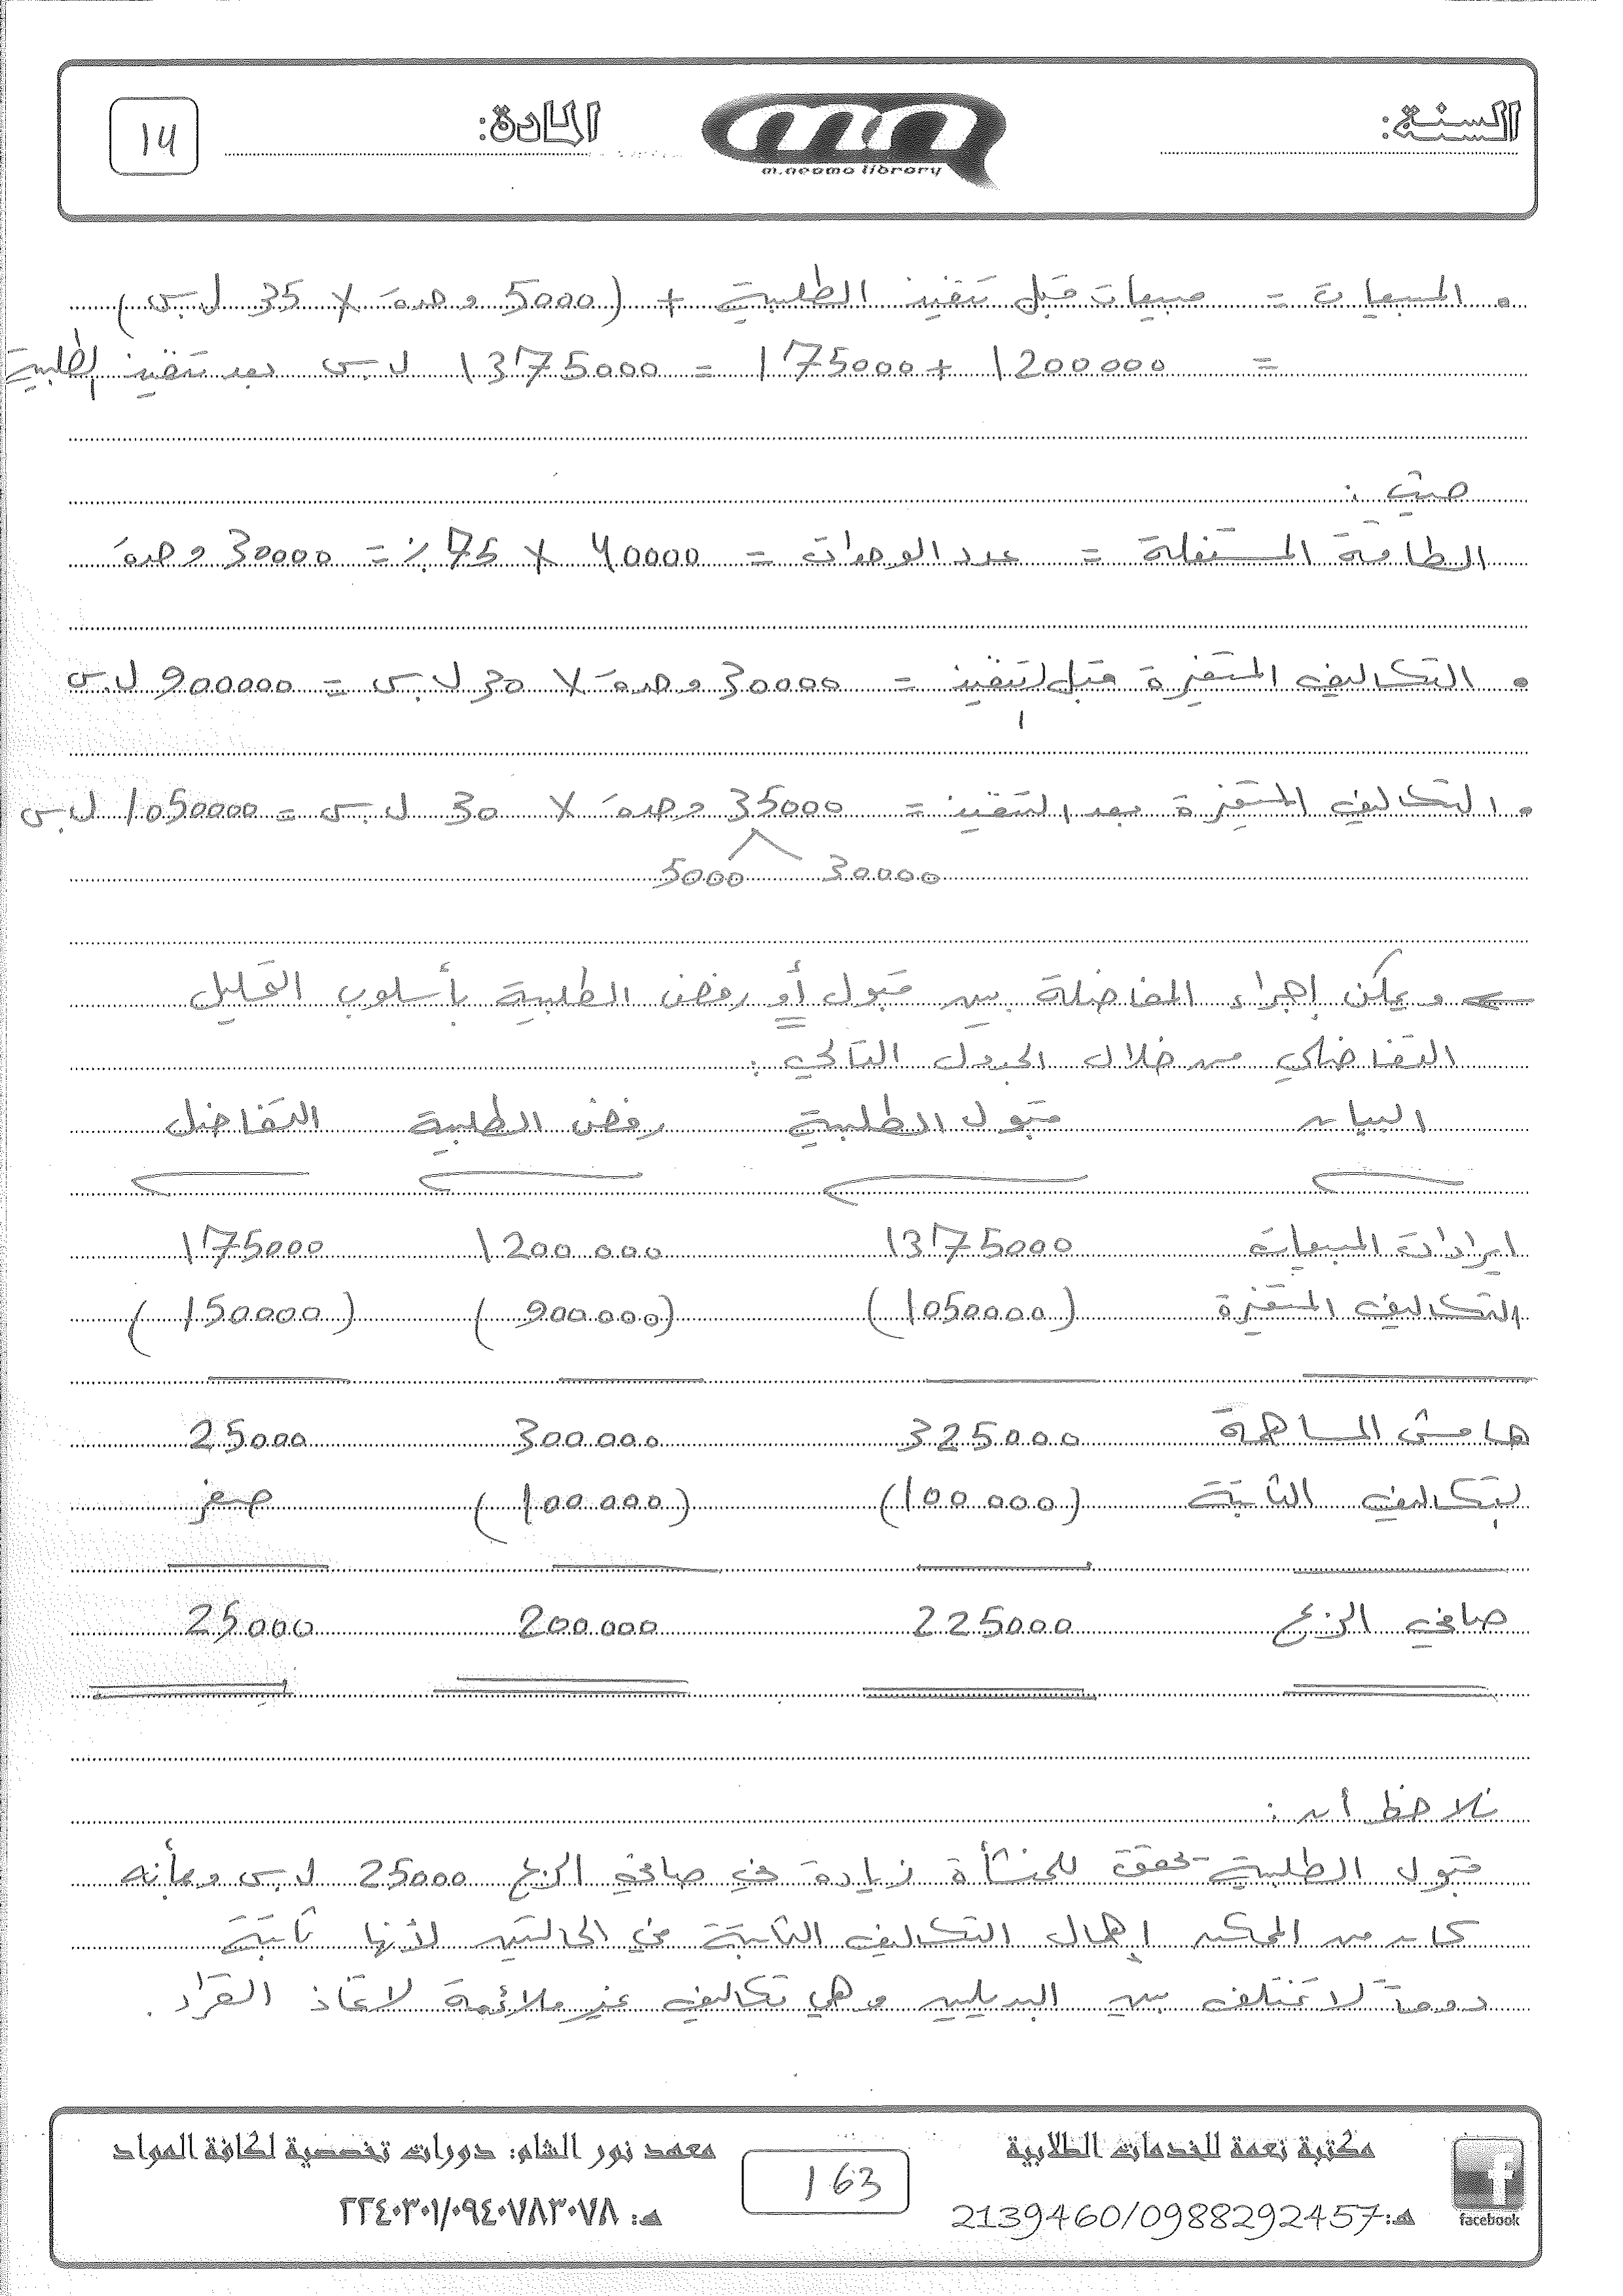 السنة:
m.neama library
المادة:
14
• المبيعات = مبيعات قبل تنفيذ الطلبية + (5000 وحدة × 35 ل.س)
= 1200000 + 175000 = 1375000 ل.س بعد تنفيذ الطلبية
حيث:
الطاقة المستغلة = عدد الوحدات = 40000 × 75٪ = 30000 وحدة
• التكاليف المتغيرة قبل التنفيذ = 30000 وحدة × 30 ل.س = 900000 ل.س
• التكاليف المتغيرة بعد التنفيذ = 35000 وحدة × 30 ل.س = 1050000 ل.س
30000 5000
ويمكن إجراء المفاضلة بين قبول أو رفض الطلبية بأسلوب التحليل
التفاضلي من خلال الجدول التالي:
البيان قبول الطلبية رفض الطلبية التفاضل
ايرادات المبيعات 1375000 1200000 175000
التكاليف المتغيرة (1050000) (900000) (150000)
هامش المساهمة 325000 300000 25000
التكاليف الثابتة (100000) (100000) صفر
صافي الربح 225000 200000 25000
نلاحظ أن:
قبول الطلبية تحقق للمنشأة زيادة في صافي الربح 25000 ل.س وبأنه
كان من الممكن إهمال التكاليف الثابتة في الحالتين لأنها ثابتة
دوماً لا تختلف بين البديلين وهي تكاليف غير ملائمة لاتخاذ القرار.
مكتبة نعمة للخدمات الطلابية
هـ: 2139460/0988292457
facebook
163
معهد نور الشام: دورات تخصصية لكافة المواد
هـ: ٢٢٤٠٣٠١/٠٩٤٠٧٨٣٠٧٨